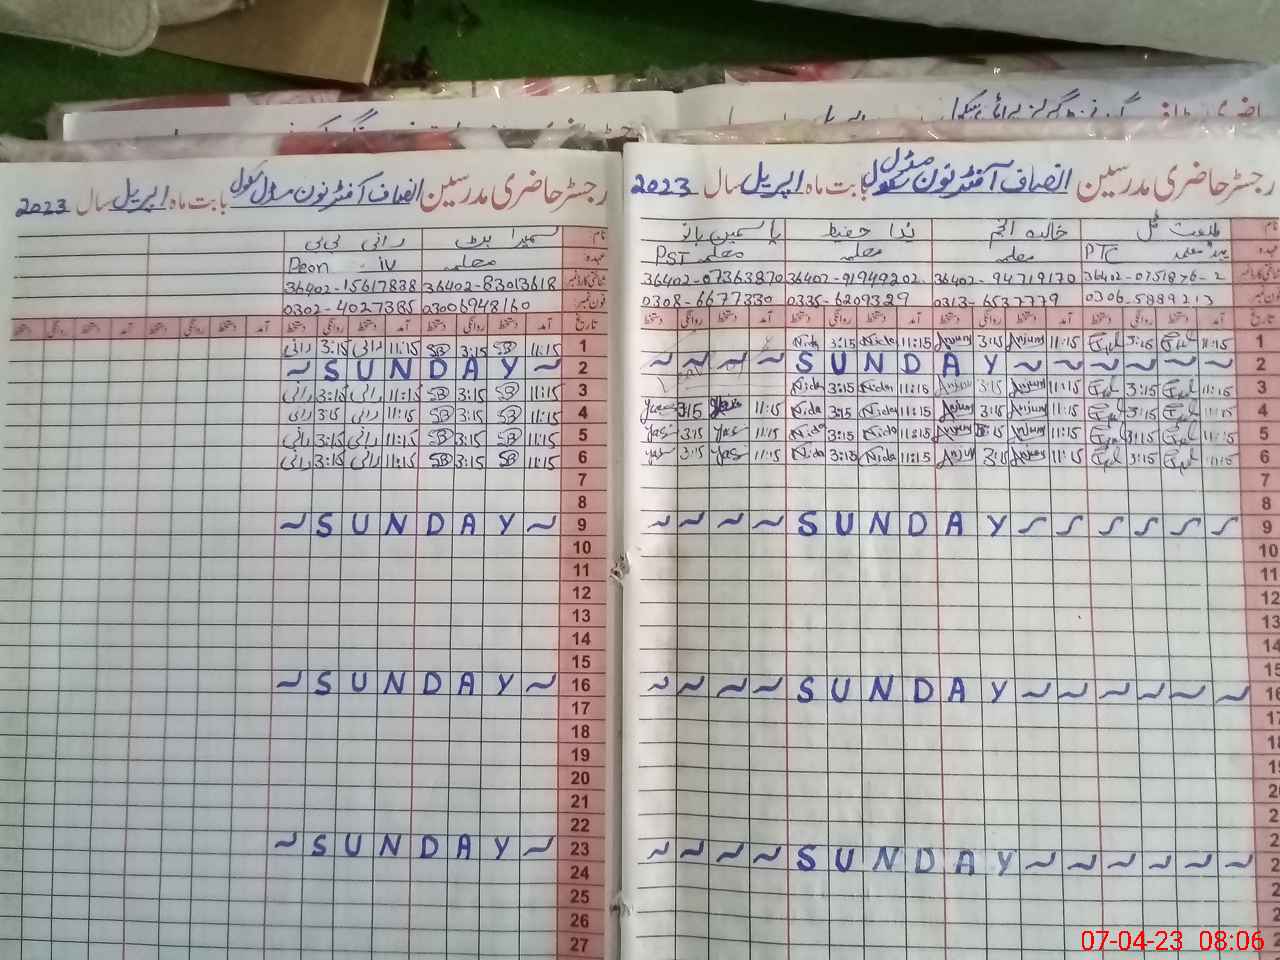 رجسٹر حاضری مدرسین انصاف آفٹر نون مڈل سکول بابت ماہ اپریل سال 2023
نام طلعت گل خالدہ انجم ندا حفیظ یاسمین بانو
عہدہ PTC معلمہ معلمہ معلمہ PST
شناختی کارڈ نمبر 36402-0751876-2 36402-94719170 36402-91949202 36402-07363870
فون نمبر 0306-5889213 0313-6537779 0335-6209329 0308-6677330
تاریخ آمد دستخط روانگی دستخط آمد دستخط روانگی دستخط آمد دستخط روانگی دستخط آمد دستخط روانگی دستخط
1 11:15 3:15 11:15 Anjum 3:15 Anjum 11:15 Nida 3:15 Nida
2 ~ ~ ~ ~ ~ ~ S U N D A Y ~ ~ ~ ~
3 11:15 3:15 11:15 Anjum 3:15 Anjum 11:15 Nida 3:15 Nida
4 11:15 3:15 11:15 Anjum 3:15 Anjum 11:15 Nida 3:15 Nida 11:15 3:15
5 11:15 3:15 11:15 Anjum 3:15 Anjum 11:15 Nida 3:15 Nida 11:15 Yas 3:15 Yas
6 11:15 3:15 11:15 Anjum 3:15 Anjum 11:15 Nida 3:15 Nida 11:15 Yas 3:15 Yas
7
8
9 S U N D A Y
10
11
12
13
14
15
16 ~ ~ ~ ~ S U N D A Y ~ ~ ~ ~ ~ ~
17
~ ~ ~ ~ S U N D A Y ~ ~ ~ ~ ~ ~
رجسٹر حاضری مدرسین انصاف آفٹر نون مڈل سکول بابت ماہ اپریل سال 2023
نام سمیرا بٹ رانی بی بی
عہدہ معلمہ Peon - iv
شناختی کارڈ نمبر 36402-83013618 36402-15617838
فون نمبر 03006948160 0302-4027385
تاریخ آمد دستخط روانگی دستخط آمد دستخط روانگی دستخط آمد دستخط روانگی دستخط آمد دستخط روانگی دستخط
1 11:15 SB 3:15 SB 11:15 رانی 3:15 رانی
2 ~ S U N D A Y ~
3 11:15 SB 3:15 SB 11:15 رانی 3:15 رانی
4 11:15 SB 3:15 SB 11:15 رانی 3:15 رانی
5 11:15 SB 3:15 SB 11:15 رانی 3:15 رانی
6 11:15 SB 3:15 SB 11:15 رانی 3:15 رانی
7
8
9 ~ S U N D A Y ~
10
11
12
13
14
15
16 ~ S U N D A Y ~
17
18
19
20
21
22
23 ~ S U N D A Y ~
24
25
26
27
07-04-23 08:06